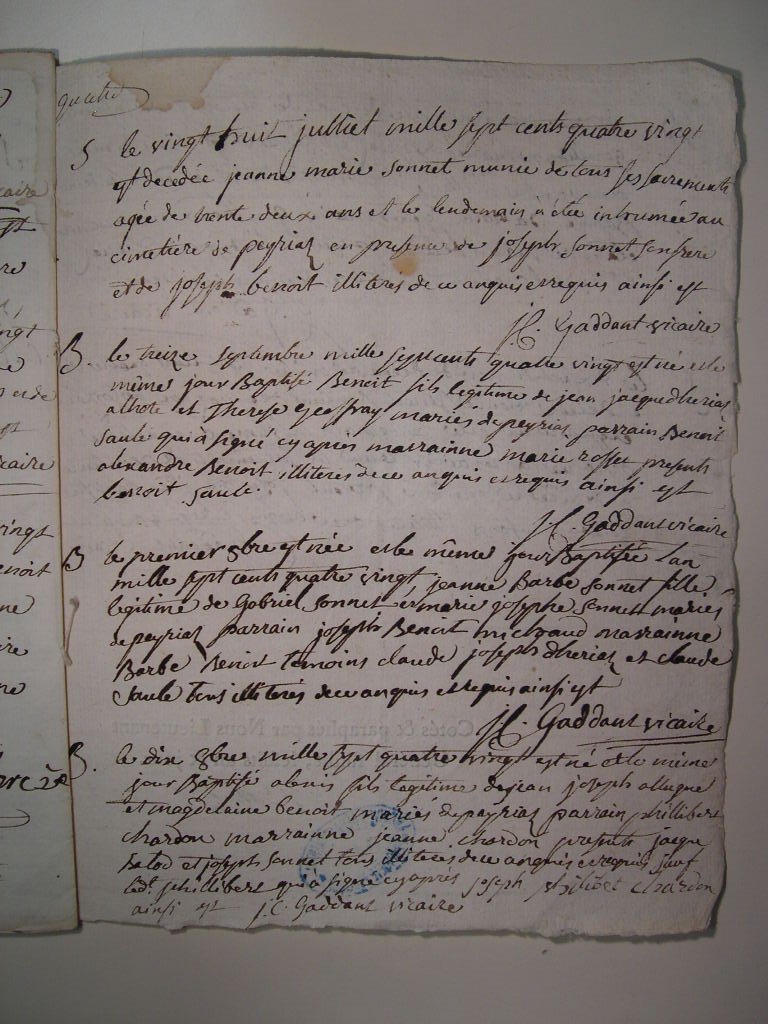 quatre
S le vingt huit julliet mille sept cents quatre vingt
est decedée jeanne marie sonnet munie de tous ses sacrements
agée de trente deux ans et le lendemain a été inhumée au
cimetière de peyriaz en presence de joseph sonnet son frere
et de joseph benoit illiteres de ce anquis et requis ainsi est
J.C. Gaddant vicaire
B. le treize septembre mille sept cents quatre vingt est né et le
même jour Baptisé Benoit fils legitime de jean jacque dherias
alhote et Therese Geoffray mariés de peyriaz parrain Benoit
saule qui a signé cy après marrainne marie rosset presents
alexandre Benoit illiteres de ce anquis et requis ainsi est
benoit saule.
J.C. Gaddant vicaire
B le premier 9bre est née et le même jour Baptisée l'an
mille sept cents quatre vingt jeanne Barbe sonnet fille
legitime de Gabriel sonnet et marie josephe sonnet mariés
de peyriaz parrain joseph Benoit michaud marrainne
Barbe Benoit temoins claude joseph dheriaz et claude
saule tous illiterés de ce anquis et requis ainsi est
J.C. Gaddant vicaire
B. le dix 9bre mille sept quatre vingt est né et le même
jour Baptisé alexis fils legitime de jean joseph
et magdelaine benoit mariés de peyriaz parrain phillibert
chardon marrainne jeanne chardon presents jacque
et joseph sonnet tous illiteres de ce anquis et requis sauf
led. phillibert qui a signé cy après joseph philibert chardon
ainsi est J.C. Gaddant vicaire